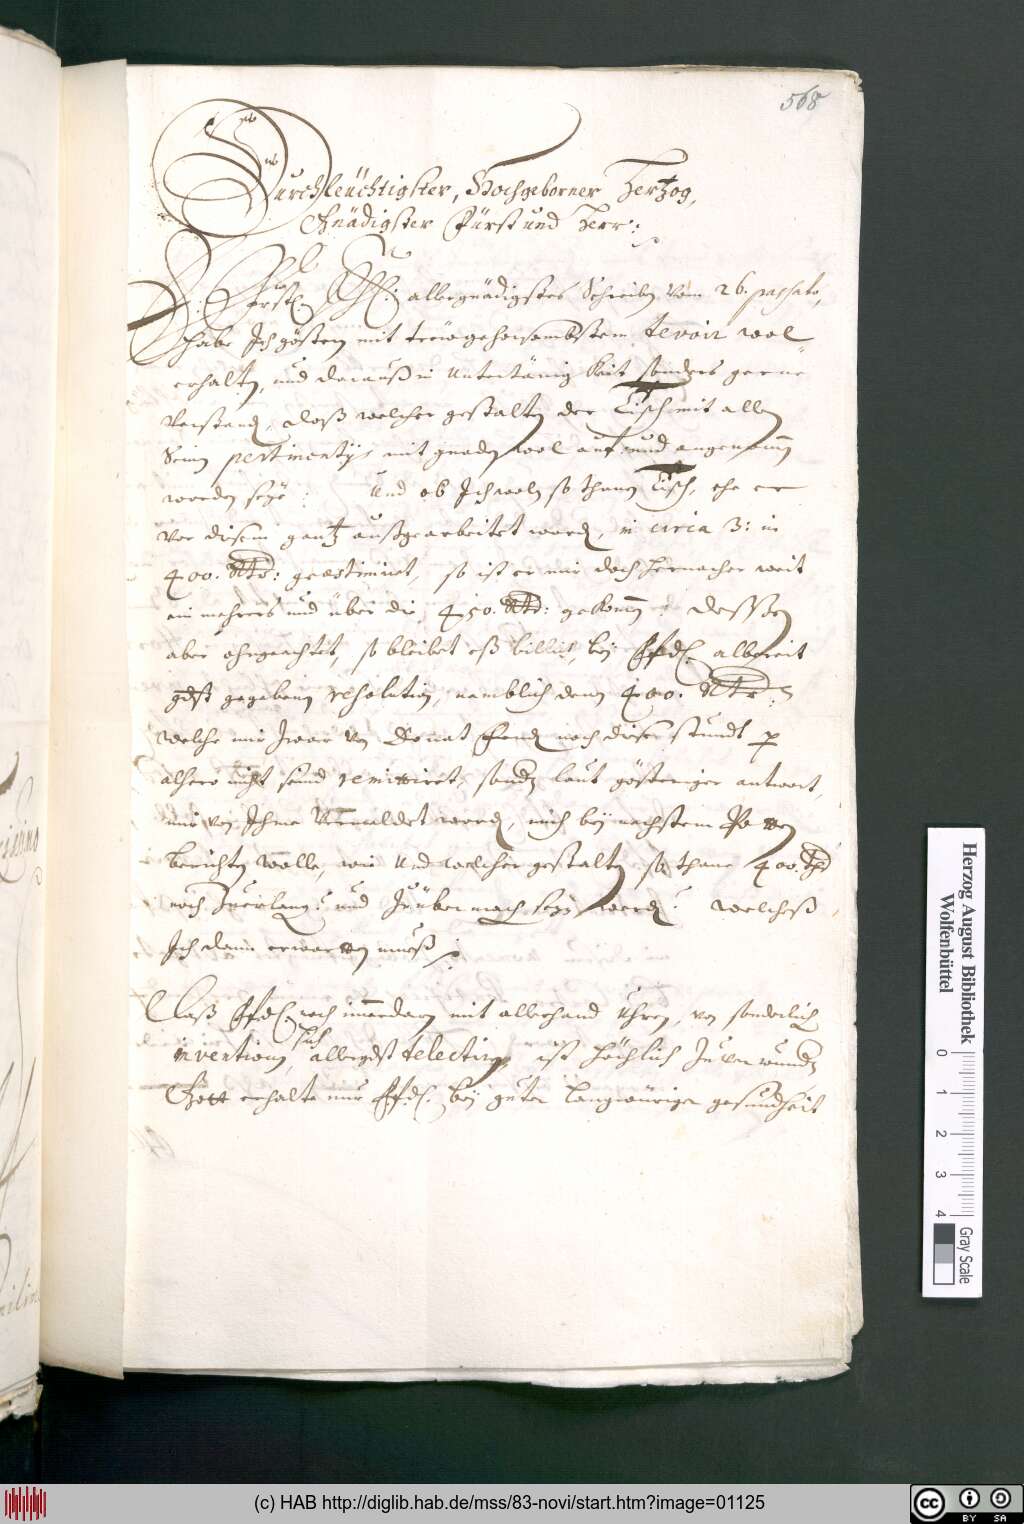 568
Durchleüchtigster, Hochgeborner Hertzog,
Gnädigster Fürst und Herr:
allergnädigstes Schreiben vom 26. passato,
habe Ich gösten mit trewgehorsambstem wol
erhalten, und darauß in Untertänigkeit sonders gerne
Verstanden, daß welcher gestalten der Tisch mit allen
Seinen pertinentijs mit gnaden wol auf und angenommen
worden seye: Und ob Ich wolen so thanen Tisch, ehe er
vor disem gantz außgearbeitet worden, in circa 3: in
400. Rtr: geästimiret, so ist er mir doch hernacher weit
ein mehrers und über die 450. Rtr: gekommen dessen
aber ohngeachtet, so bleibet eß billich, bey albereit
gdst gegebenen resolution, namblich denen 400. Rtr:
Welche mir zwar von noch dise stundt p
alhero nicht seind remittiret, sondern laut gösteriger antwort,
mir von Ihme Vermeldet worden, mich bey nechstem Posten
berichten wolle, wie und welcher gestalten so thane 400. Thr
noch Zuerlangen und Zuübermachen seyn werden? welcheß
Ich dann erwarten mueß:
Daß noch immerdaren mit allerhand Uhren, von sonderlichen
inventionen, sich allergdst delectiren ist höchlich Zuverwundern
Gott erhalte nur bey guter langwüriger gesundheit
Herzog August Bibliothek
Wolfenbüttel
0 1 2 3 4
Gray Scale
(c) HAB http://diglib.hab.de/mss/83-novi/start.htm?image=01125
cc BY SA